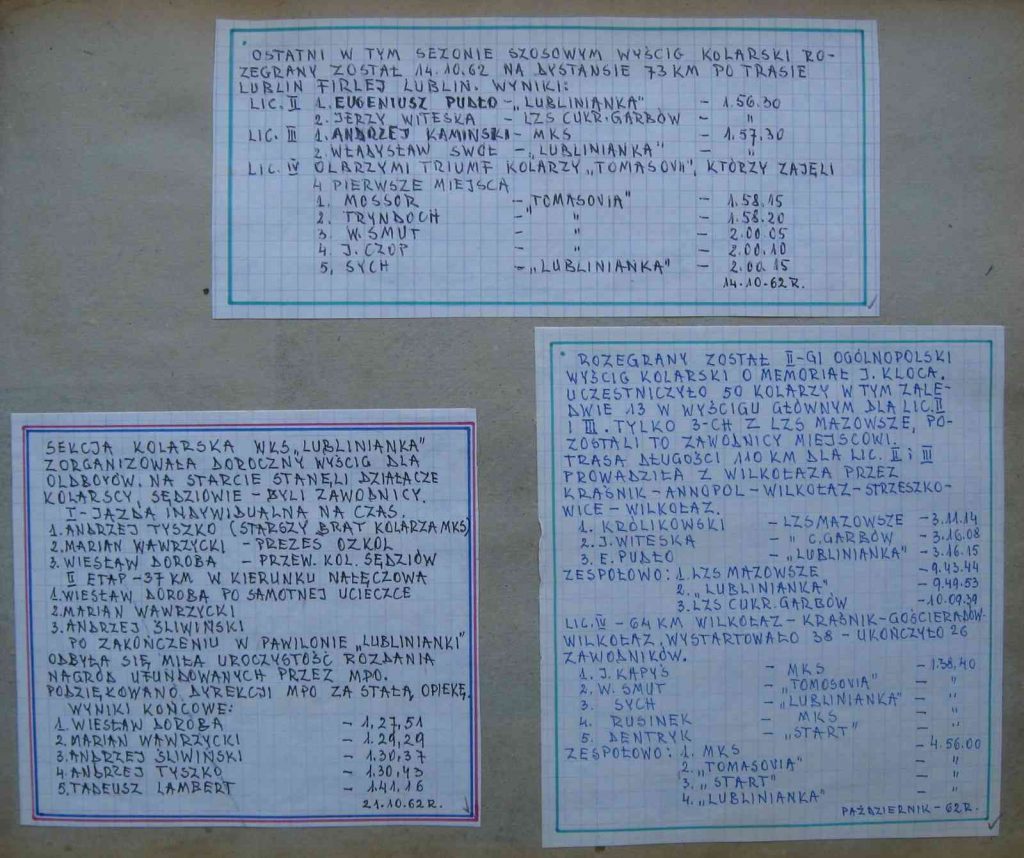 OSTATNI W TYM SEZONIE SZOSOWYM WYŚCIG KOLARSKI RO-
ZEGRANY ZOSTAŁ 14.10.62 NA DYSTANSIE 73 KM PO TRASIE
LUBLIN FIRLEJ LUBLIN. WYNIKI:
LIC. II 1. EUGENIUSZ PUDŁO - „LUBLINIANKA" - 1.56.30
2. JERZY WITESKA - LZS CUKR. GARBÓW - "
LIC. III 1. ANDRZEJ KAMIŃSKI - MKS - 1.57.30
2. WŁADYSŁAW SWÓŁ - „LUBLINIANKA" - "
LIC. IV OLBRZYMI TRIUMF KOLARZY „TOMASOVII", KTÓRZY ZAJĘLI
4 PIERWSZE MIEJSCA
1. MOSSOR - „TOMASOVIA" - 1.58.15
2. TRYNDOCH - " - 1.58.20
3. W. SMUT - " - 2.00.05
4. J. CZOP - " - 2.00.10
5. SYCH - „LUBLINIANKA" - 2.00.15
14.10.62 R.
SEKCJA KOLARSKA WKS „LUBLINIANKA"
ZORGANIZOWAŁA DOROCZNY WYŚCIG DLA
OLDBOYÓW. NA STARCIE STANĘLI DZIAŁACZE
KOLARSCY, SĘDZIOWIE - BYLI ZAWODNICY.
I - JAZDA INDYWIDUALNA NA CZAS.
1. ANDRZEJ TYSZKO (STARSZY BRAT KOLARZA MKS)
2. MARIAN WAWRZYCKI - PREZES OZKOL
3. WIESŁAW DOROBA - PRZEW. KOL. SĘDZIÓW
II ETAP - 37 KM W KIERUNKU NAŁĘCZOWA
1. WIESŁAW DOROBA PO SAMOTNEJ UCIECZCE
2. MARIAN WAWRZYCKI
3. ANDRZEJ ŚLIWIŃSKI
PO ZAKOŃCZENIU W PAWILONIE „LUBLINIANKI"
ODBYŁA SIĘ MIŁA UROCZYSTOŚĆ ROZDANIA
NAGRÓD UFUNDOWANYCH PRZEZ MPO.
PODZIĘKOWANO DYREKCJI MPO ZA STAŁĄ OPIEKĘ.
WYNIKI KOŃCOWE:
1. WIESŁAW DOROBA - 1,27,51
2. MARIAN WAWRZYCKI - 1.29,29
3. ANDRZEJ ŚLIWIŃSKI - 1.30,37
4. ANDRZEJ TYSZKO - 1.30,43
5. TADEUSZ LAMBERT - 1.41,16
21.10.62 R.
ROZEGRANY ZOSTAŁ II-GI OGÓLNOPOLSKI
WYŚCIG KOLARSKI O MEMORIAŁ J. KLOCA.
UCZESTNICZYŁO 50 KOLARZY W TYM ZALE-
DWIE 13 W WYŚCIGU GŁÓWNYM DLA LIC. II
I III. TYLKO 3-CH Z LZS MAZOWSZE, PO-
ZOSTALI TO ZAWODNICY MIEJSCOWI.
TRASA DŁUGOŚCI 110 KM DLA LIC. II i III
PROWADZIŁA Z WILKOŁAZA PRZEZ
KRAŚNIK - ANNOPOL - WILKOŁAZ - STRZESZKO-
WICE - WILKOŁAZ.
1. KRÓLIKOWSKI - LZS MAZOWSZE - 3.11.14
2. J. WITESKA - " C. GARBÓW - 3.16.08
3. E. PUDŁO - „LUBLINIANKA" - 3.16.15
ZESPOŁOWO: 1. LZS MAZOWSZE - 9.43.44
2. „LUBLINIANKA" - 9.49.53
3. LZS CUKR. GARBÓW - 10.09.39
LIC. IV - 64 KM WILKOŁAZ - KRAŚNIK - GOŚCIERADÓW-
WILKOŁAZ, WYSTARTOWAŁO 38 - UKOŃCZYŁO 26
ZAWODNIKÓW.
1. J. KAPYŚ - MKS - 1.38,40
2. W. SMUT - „TOMOSOVIA" - "
3. SYCH - „LUBLINIANKA" - "
4. RUSINEK - MKS - "
5. DENTRYK - „START" - "
ZESPOŁOWO: 1. MKS - 4.56.00
2. „TOMASOVIA" - "
3. „START" - "
4. „LUBLINIANKA" - "
PAŹDZIERNIK - 62 R.